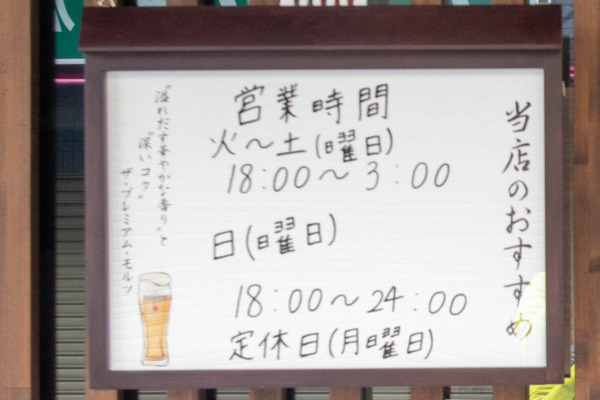 当店のおすすめ
営業時間
火～土(曜日)
18:00～3:00
日(曜日)
18:00～24:00
定休日(月曜日)
"溢れだす華やかな香り"と
"深いコク"
ザ・プレミアム・モルツ